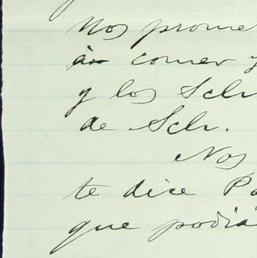 Nos prome
à comer y
y los Sch
de Sch.
Nos
te dice Pa
que podia